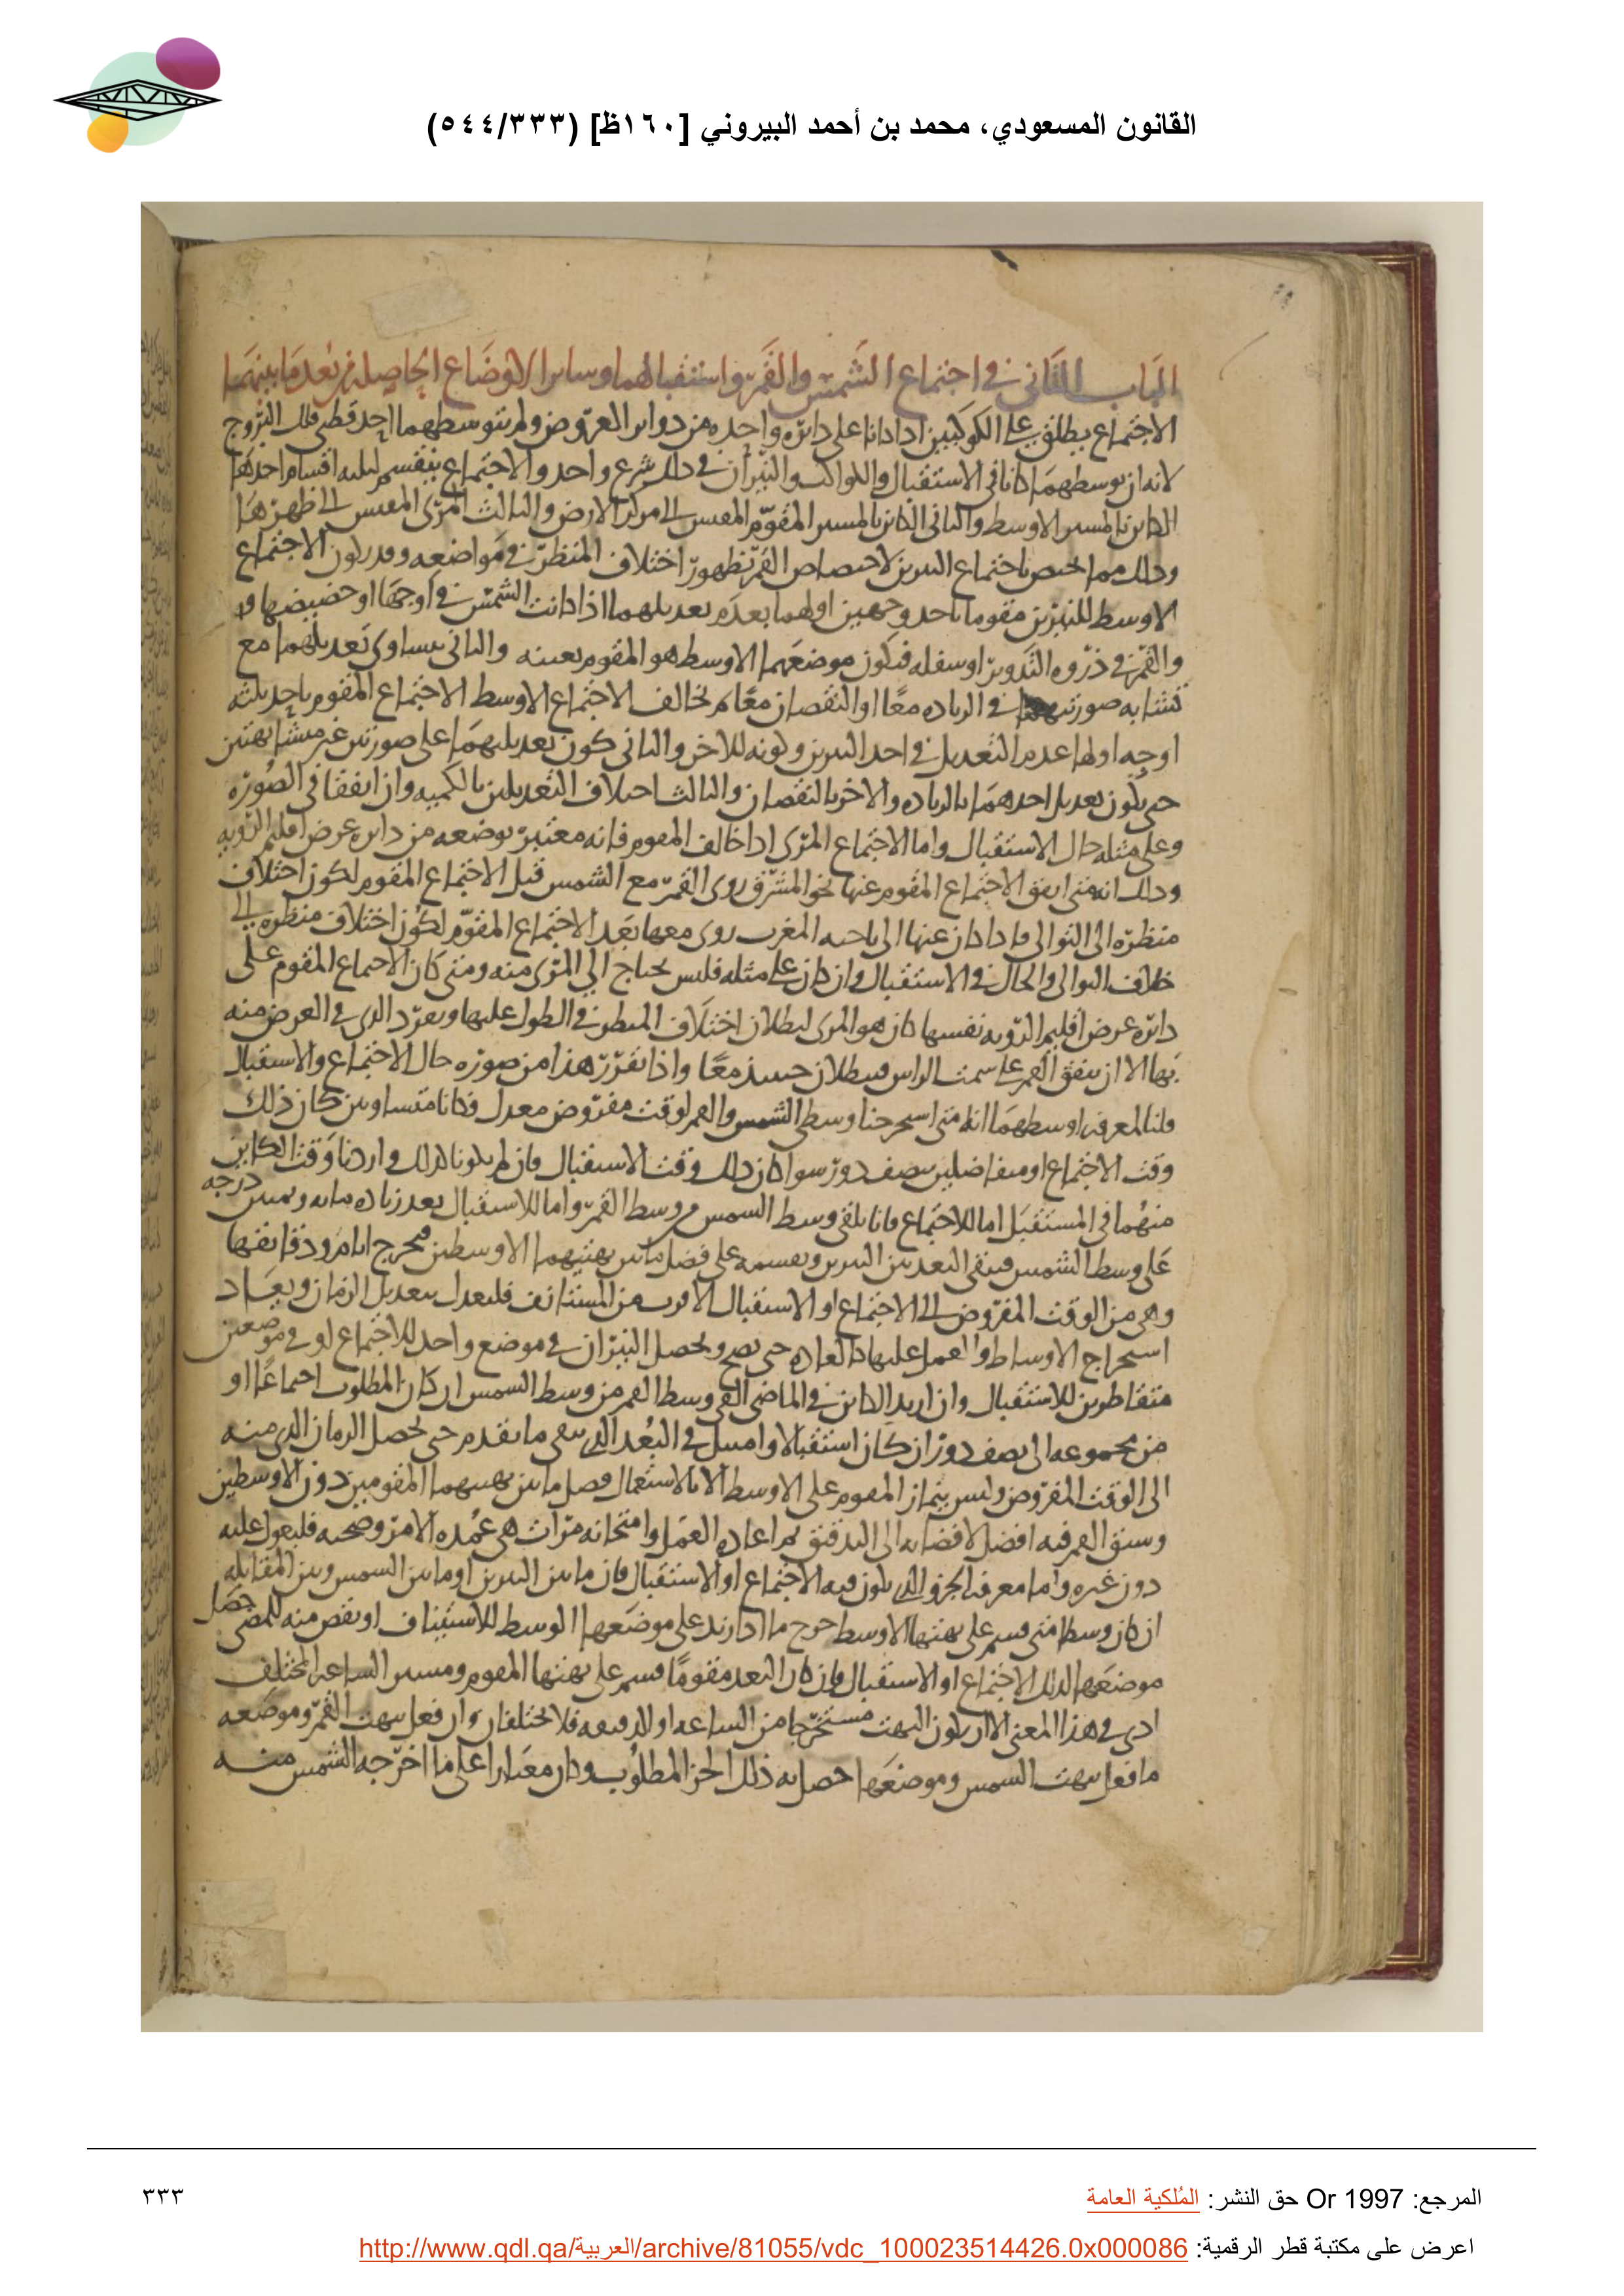 القانون المسعودي، محمد بن أحمد البيروني [١٦٠ظ] (٥٤٤/٣٣٣)
الباب الثاني في اجتماع الشمس والقمر واستقبالهما وساير الاوضاع الحاصلة من بعد ما بينهما
الاجتماع يطلق على الكوكبين اذا كانا على دائرة واحده من دواير العروض ولم يتوسطهما احد قطبي فلك البروج
لانه ان توسطهما كانا في الاستقبال والكواكب والنيران في ذلك شرع واحد والاجتماع ينقسم لثلثه اقسام احدها
الكاين بالمسير الاوسط والثاني الكاين بالمسير المقوم المقيس الى مركز الارض والثالث المرئي المقيس الى ظهرها
وذلك مما يختص باجتماع النيرين لاختصاص القمر بظهور اختلاف المنظر في مواضعه وقد يكون الاجتماع
الاوسط للنيرين مقوما باحد وجهين اولهما بعدم تعديلهما اذا كانت الشمس في اوجها او حضيضها
والقمر في ذروه التدوير او سفله فيكون موضعهما الاوسط هو المقوم بعينه والثاني بتساوي تعديلهما مع
تشابه صورتيهما في الزياده معا او النقصان معا ثم يخالف الاجتماع الاوسط الاجتماع المقوم باحد ثلثه
اوجه اولها عدم التعديل في احد النيرين وكونه للاخر والثاني كون تعديليهما على صورتين غير متشابهتين
حتى يكون تعديل احدهما بالزياده والاخر بالنقصان والثالث اختلاف التعديلين بالكميه وان اتفقا في الصوره
وعلى مثله حال الاستقبال واما الاجتماع المرئي اذا خالف المقوم فانه معتبر بوضعه من دايره عرض اقليم الرويه
وذلك انه متى اتفق الاجتماع المقوم عنها نحو المشرق روى القمر مع الشمس قبل الاجتماع المقوم لكون اختلاف
منظره الى التوالي واذا كان عنها الى ناحيه المغرب روى معها بعد الاجتماع المقوم لكون اختلاف منظره الى
خلاف التوالي والحال في الاستقبال وان كان على مثله فليس يحتاج الى المرئي منه ومتى كان الاجتماع المقوم على
دايره عرض اقليم الرويه نفسها كان هو المرئي لبطلان اختلاف المنظر في الطول عليها وتفرد الذي في العرض منه
بها الا ان يتفق القمر على سمت الراس فيبطلان حينيذ معا واذا تقرر هذا من صوره حال الاجتماع والاستقبال
قلنا لمعرفه اوسطهما انه متى استخرجنا وسطي الشمس والقمر لوقت مفروض معدل فكانا متساويين كان ذلك
وقت الاجتماع او متفاضلين بنصف دور سوا كان ذلك وقت الاستقبال فان لم يكونا كذلك واردنا وقت الكاين
منهما في المستقبل اما للاجتماع فانا نلقي وسط الشمس من وسط القمر واما للاستقبال بعد زياده مايه وثمنين درجه
على وسط الشمس فيبقى البعد بين النيرين ونقسمه على فضل ما بين بهتيهما الاوسطين فيخرج ايام ودقايقها
وهي من الوقت المفروض الى الاجتماع او الاستقبال الاقرب من المستانف فليعدل بتعديل الزمان ويعاد
استخراج الاوساط والعمل عليها كالعاده حتى يصح ويحصل النيران في موضع واحد للاجتماع او في موضعين
متقاطرين للاستقبال وان اريد الكاين في الماضي القي وسط القمر من وسط الشمس ان كان المطلوب اجتماعا او
من مجموعه الى نصف دور ان كان استقبالا وامتثل في البعد الذي يبقى ما تقدم حتى يحصل الزمان الذي منه
الى الوقت المفروض وليس يمتاز المقوم على الاوسط الا بالاستعمال فضل ما بين بهتيهما المقومين دون الاوسطين
وسبق القمر فيه افضل لافضايه الى التدقيق ثم اعاده العمل وامتحانه مرات هي عمده الامر وصحته فليعول عليه
دون غيره واما معرفه الجزو الذي يكون فيه الاجتماع او الاستقبال فان ما بين النيرين او ما بين الشمس وبين المقابله
ان كان وسطا متى قسم على بهتها الاوسط خرج ما اذا زيد على موضعها الوسط للاستيناف او نقص منه للمضي حصل
موضعها لذلك الاجتماع او الاستقبال فان كان البعد مقوما قسم على بهتها المقوم ومسير الساعه المختلف
ادى في هذا المعنى الا ان يكون البهت مستخرجا من الساعه او الدقيقه فلا يختلفان وان فعل ببهت القمر وموضعه
ما فعل ببهت الشمس وموضعها حصل به ذلك الجز المطلوب وكان معيارا على ما اخرجه الشمس منه
المرجع: Or 1997 حق النشر: المُلكية العامة
٣٣٣
اعرض على مكتبة قطر الرقمية: http://www.qdl.qa/العربية/archive/81055/vdc_100023514426.0x000086